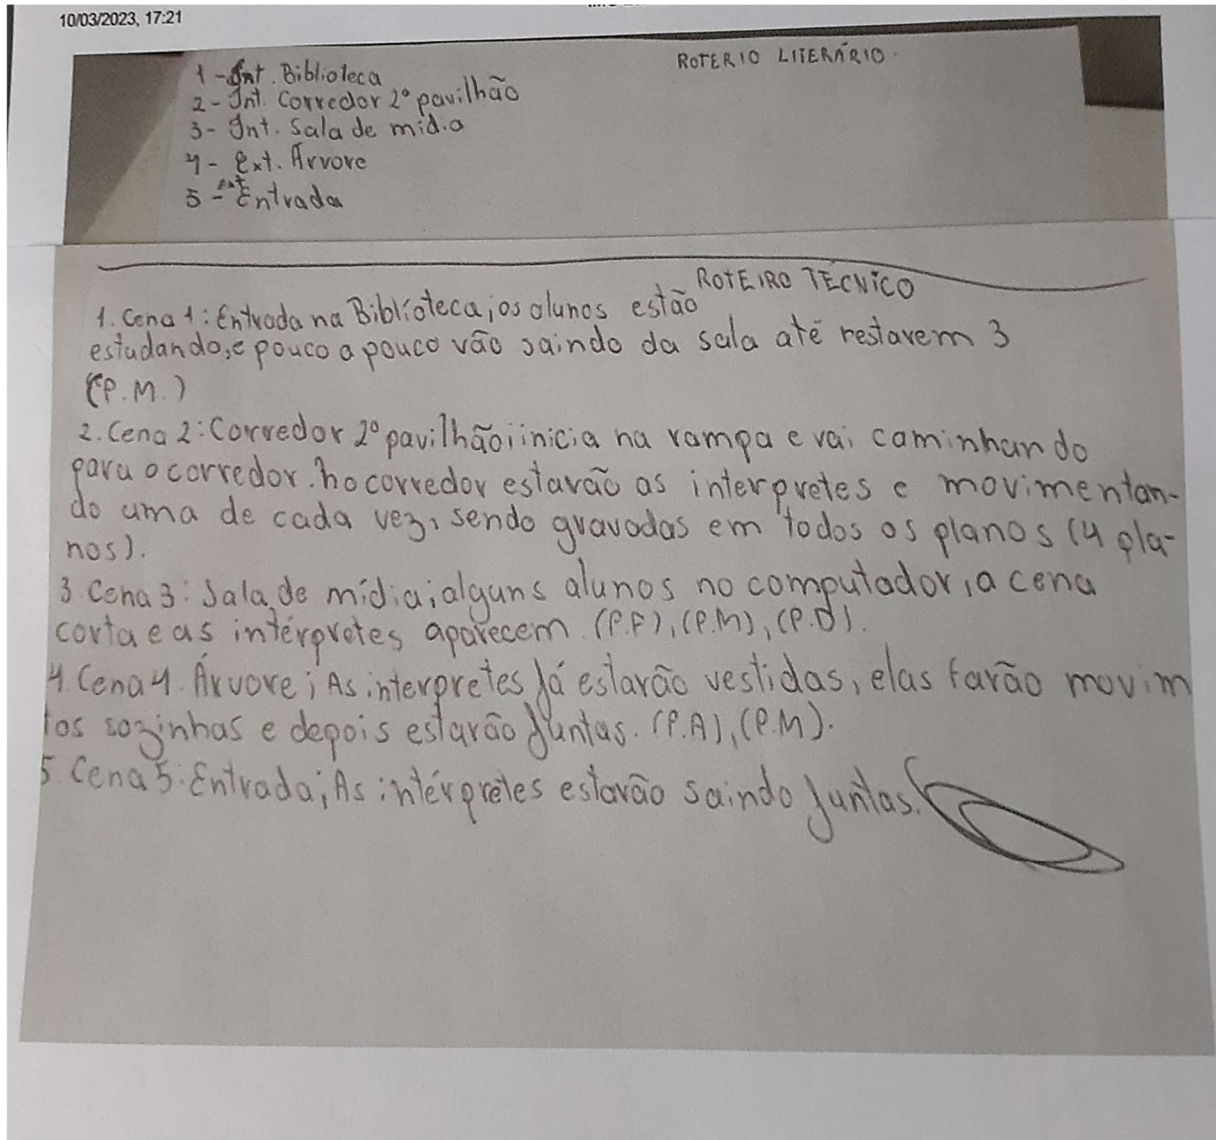 10/03/2023, 17:21
ROTERIO LITERÁRIO.
1 - Int. Biblioteca
2 - Int. Corredor 2º pavilhão
3 - Int. Sala de mídia
4 - Ext. Árvore
5 - ext Entrada
ROTEIRO TÉCNICO
1. Cena 1: Entrada na Biblioteca; os alunos estão
estudando, e pouco a pouco vão saindo da sala até restarem 3
(P.M.)
2. Cena 2: Corredor 2º pavilhão; inicia na rampa e vai caminhando
para o corredor. No corredor estarão as interpretes e movimentan-
do uma de cada vez, sendo gravadas em todos os planos (4 pla-
nos).
3. Cena 3: Sala de mídia; alguns alunos no computador, a cena
corta e as intérpretes aparecem. (P.F), (P.M), (P.D).
4. Cena 4. Árvore; As interpretes já estarão vestidas, elas farão movim
tos sozinhas e depois estarão juntas. (P.A), (P.M).
5. Cena 5: Entrada; As intérpretes estarão saindo juntas.